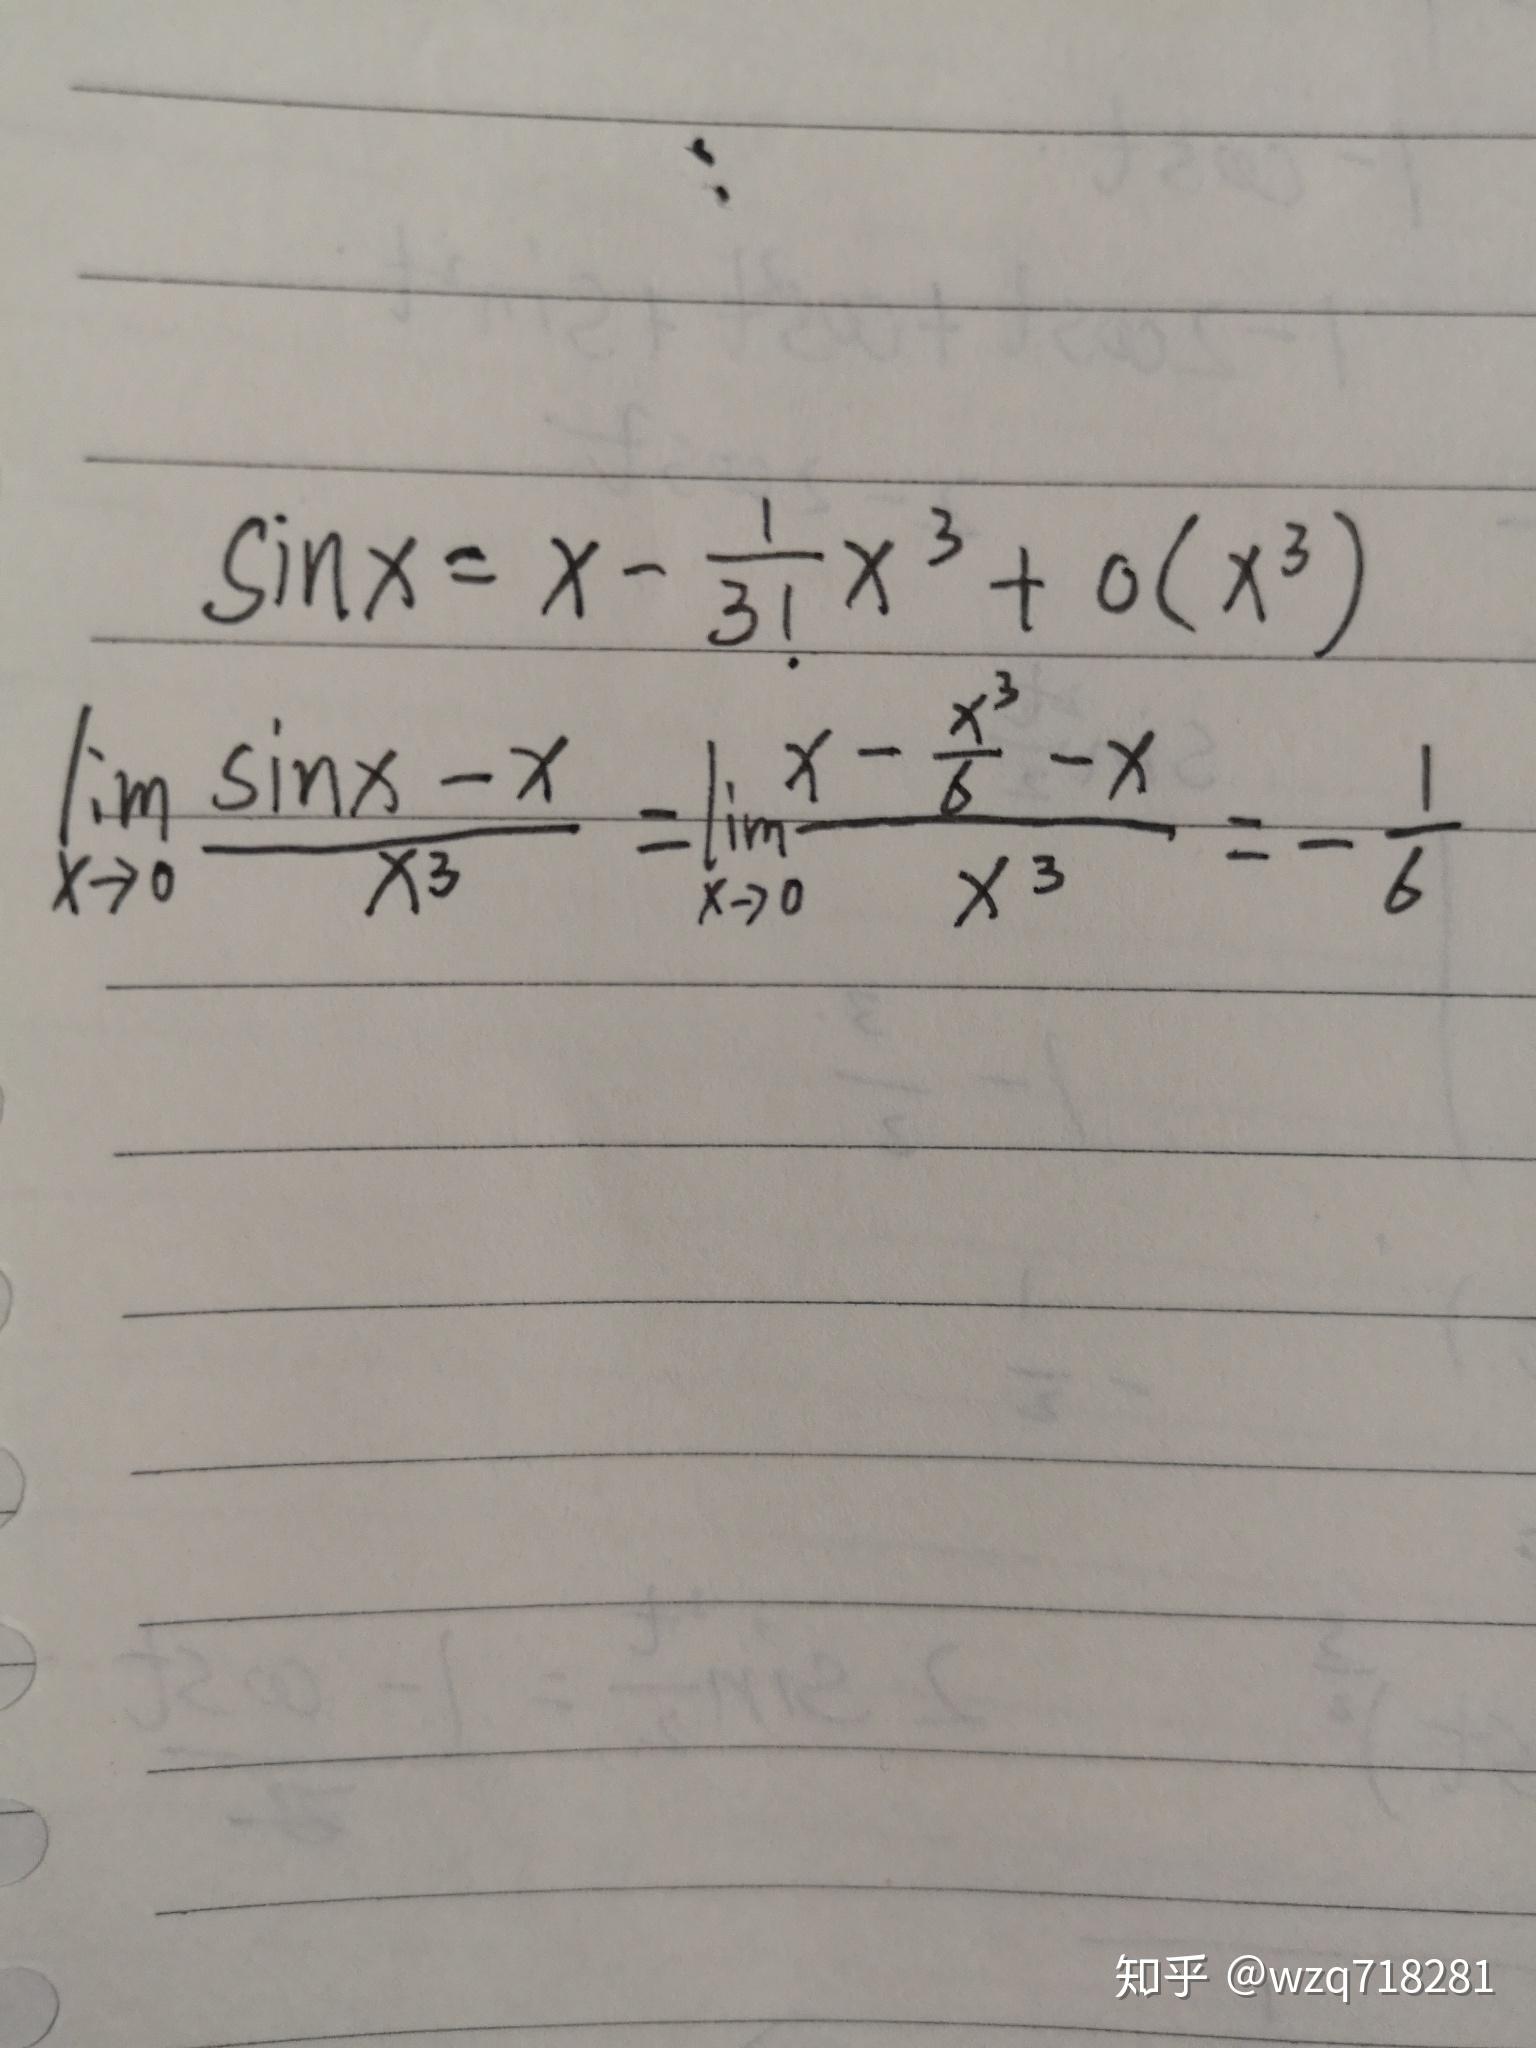 sinx = x - 1/3! x³ + o(x³)
lim x→0 (sinx - x)/x³ = lim x→0 (x - x³/6 - x)/x³ = -1/6
知乎 @wzq718281